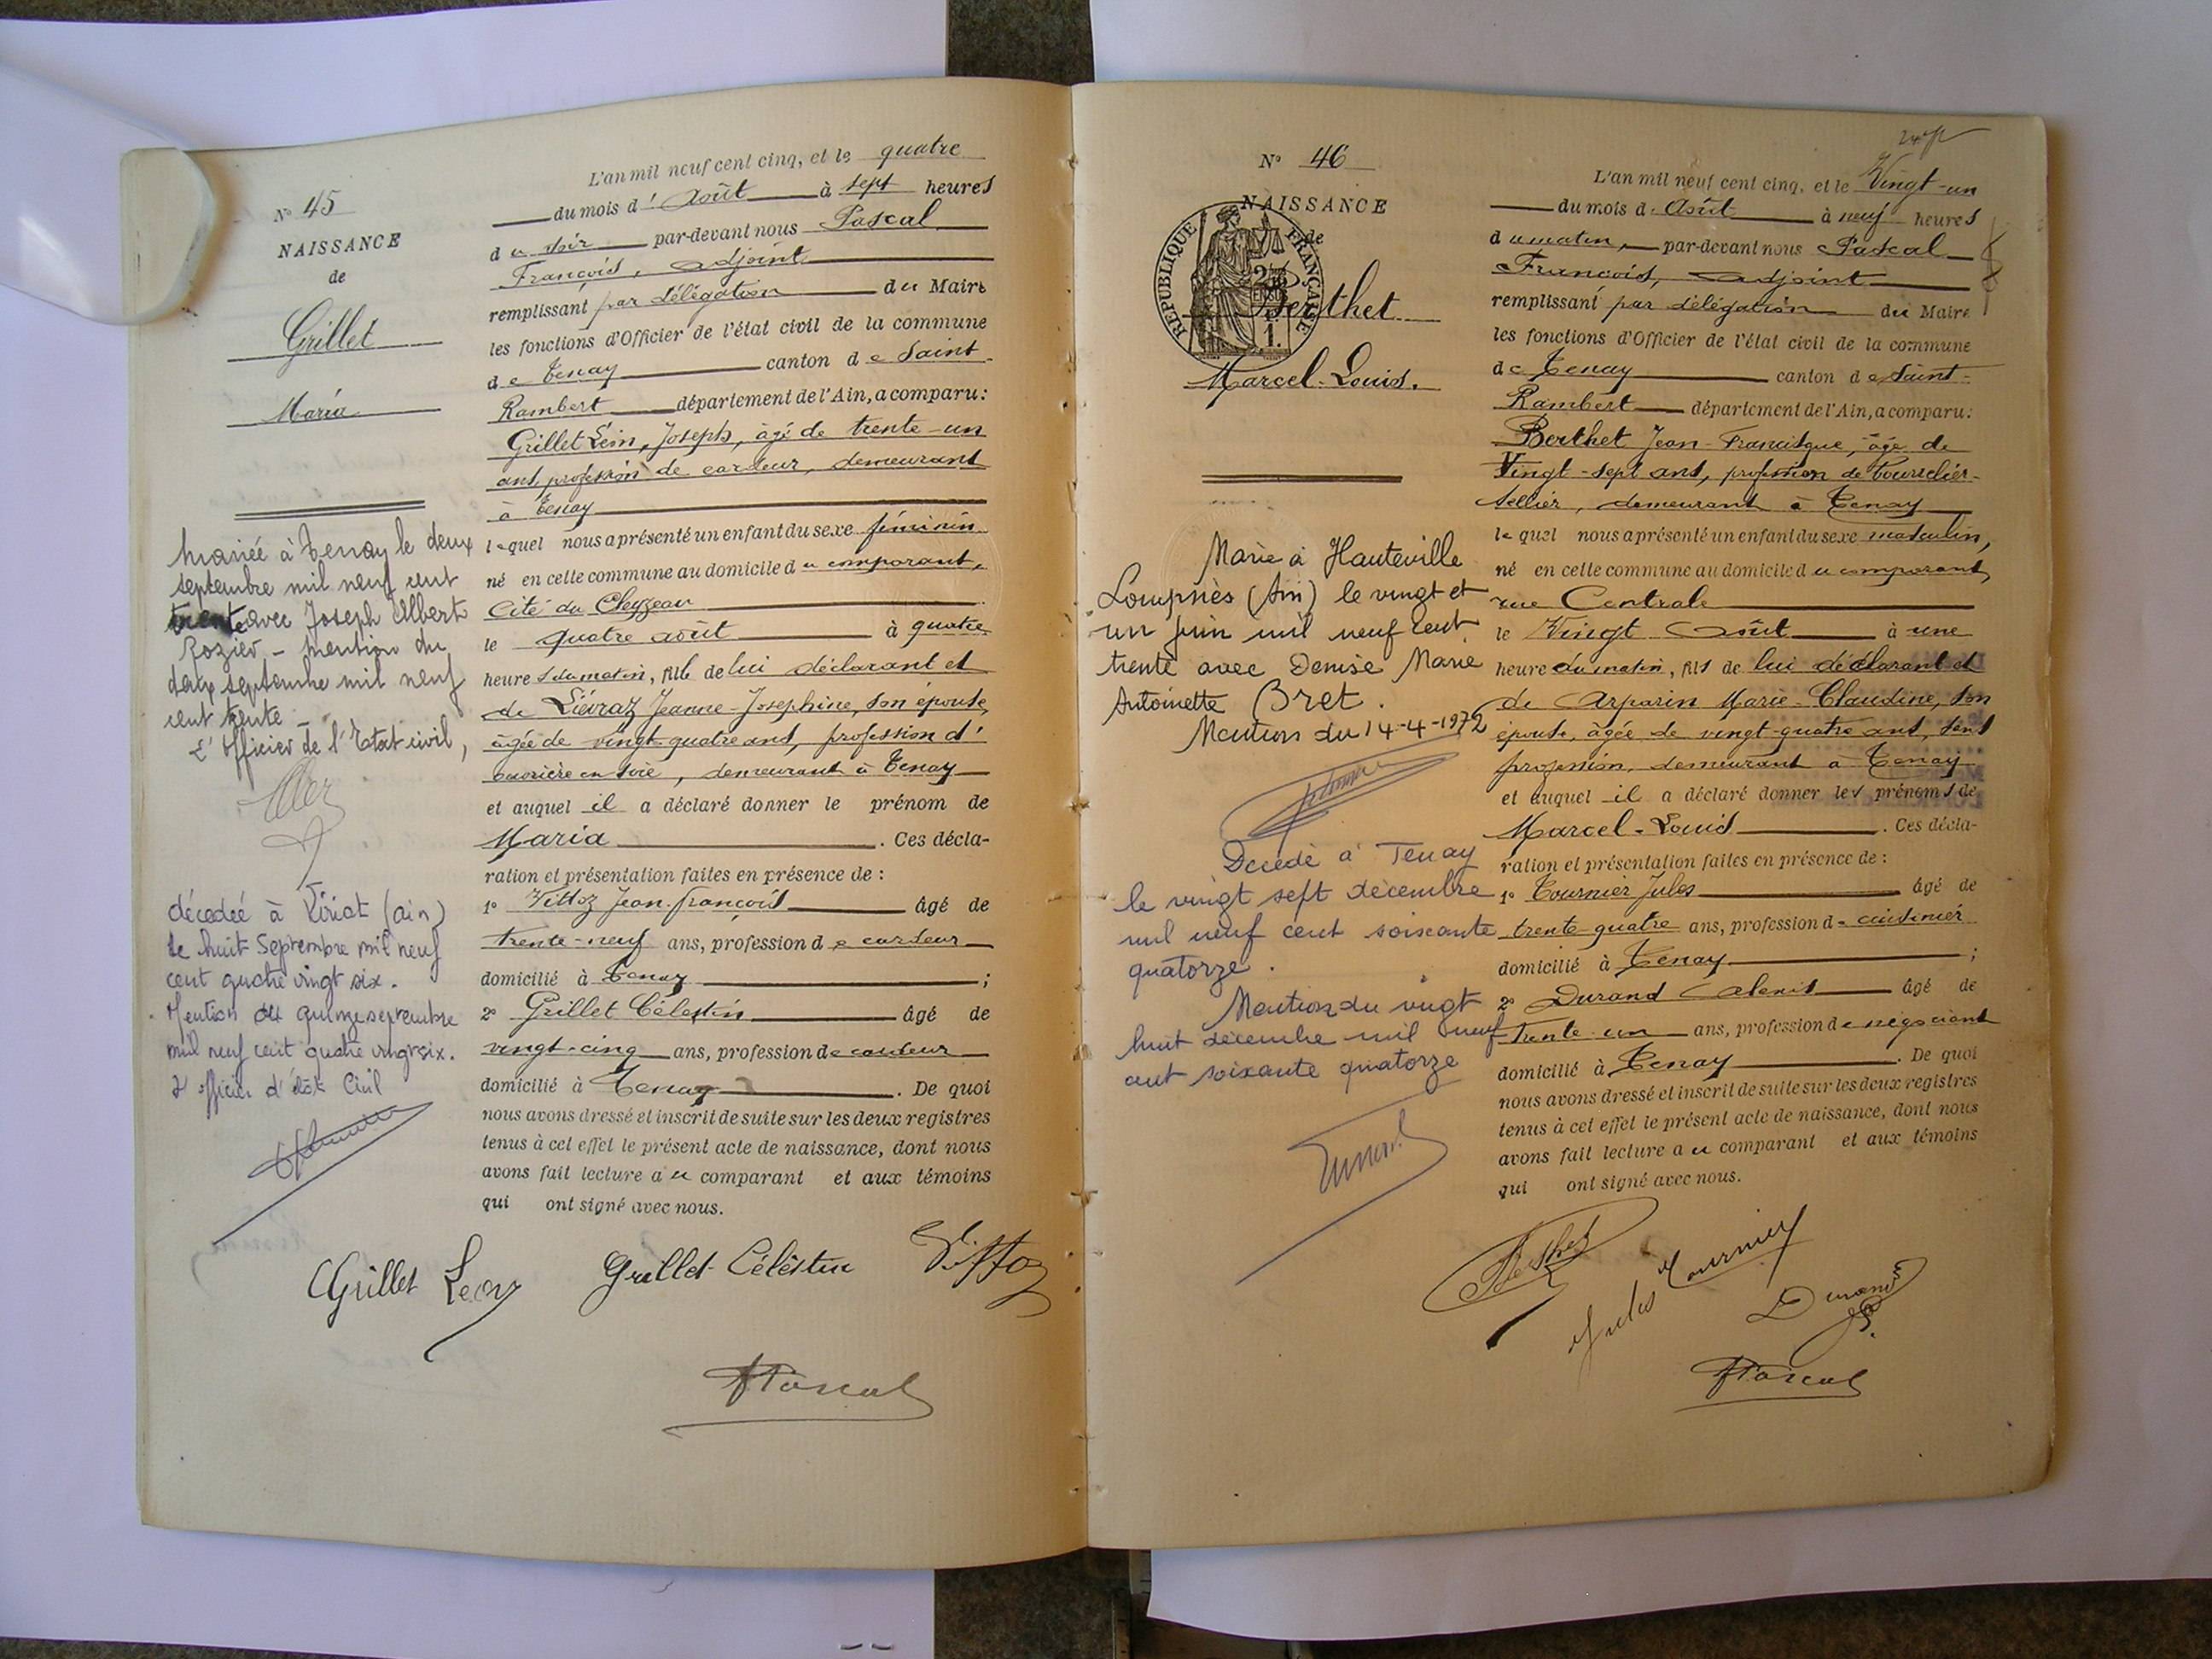 N° 45
NAISSANCE
de
Grillet
Maria
mariée à Tenay le deux
septembre mil neuf cent
trente avec Joseph Albert
Rozier - mention du
deux septembre mil neuf
cent trente -
L'officier de l'Etat civil,
décedeé à Viriat (ain)
le huit Septembre mil neuf
cent quatre vingt six.
Mention du quinze septembre
mil neuf cent quatre vingt six.
L'officier d'état Civil
L'an mil neuf cent cinq, et le quatre
du mois d'Août à sept heures
du soir par-devant nous Pascal
François, adjoint
remplissant par délégation du Maire
les fonctions d'Officier de l'état civil de la commune
de Tenay canton de Saint-
Rambert département de l'Ain, a comparu:
Grillet Léon, Joseph, âgé de trente-un
ans, profession de cardeur, demeurant
à Tenay
lequel nous a présenté un enfant du sexe féminin
né en cette commune au domicile du comparant,
Cité du
le quatre août à quatre
heures du matin, fille de lui déclarant et
de Liévraz Jeanne-Joséphine, son épouse,
âgée de vingt-quatre ans, profession d'
ouvrière en soie, demeurant à Tenay
et auquel il a déclaré donner le prénom de
Maria. Ces décla-
ration et présentation faites en présence de :
1° Vittoz Jean-François âgé de
trente-neuf ans, profession de cardeur
domicilié à Tenay ;
2° Grillet Célestin âgé de
vingt-cinq ans, profession de cardeur
domicilié à Tenay. De quoi
nous avons dressé et inscrit de suite sur les deux registres
tenus à cet effet le présent acte de naissance, dont nous
avons fait lecture au comparant et aux témoins
qui ont signé avec nous.
Grillet Leon Grillet Célêstin Vittoz
Pascal
N° 46
NAISSANCE
de
RÉPUBLIQUE FRANÇAISE
Berthet
Marcel-Louis.
Marié à Hauteville
Lompnès (Ain) le vingt et
un juin mil neuf cent
trente avec Denise Marie
Antoinette Bret.
Mention du 14-4-1972
Décédé à Tenay
le vingt sept décembre
mil neuf cent soixante
quatorze.
Mention du vingt
huit décembre mil neuf
cent soixante quatorze
L'an mil neuf cent cinq, et le Vingt-un
du mois d'Août à neuf heures
du matin, par-devant nous Pascal
François, adjoint
remplissant par délégation du Maire
les fonctions d'Officier de l'état civil de la commune
de Tenay canton de Saint-
Rambert département de l'Ain, a comparu:
Berthet Jean-Francisque, âgé de
Vingt-sept ans, profession de bourrelier-
sellier, demeurant à Tenay
lequel nous a présenté un enfant du sexe masculin,
né en cette commune au domicile du comparant,
rue Centrale
le Vingt Août à une
heure du matin, fils de lui déclarant et
de Arparin Marie-Claudine, son
épouse, âgée de vingt-quatre ans, sans
profession, demeurant à Tenay
et auquel il a déclaré donner les prénoms de
Marcel-Louis. Ces décla-
ration et présentation faites en présence de :
1° Tournier Jules âgé de
trente-quatre ans, profession de cuisinier
domicilié à Tenay ;
2° Durand Alexis âgé de
trente-un ans, profession de négociant
domicilié à Tenay. De quoi
nous avons dressé et inscrit de suite sur les deux registres
tenus à cet effet le présent acte de naissance, dont nous
avons fait lecture au comparant et aux témoins
qui ont signé avec nous.
Berthet Jules Tournier
Durand
Pascal